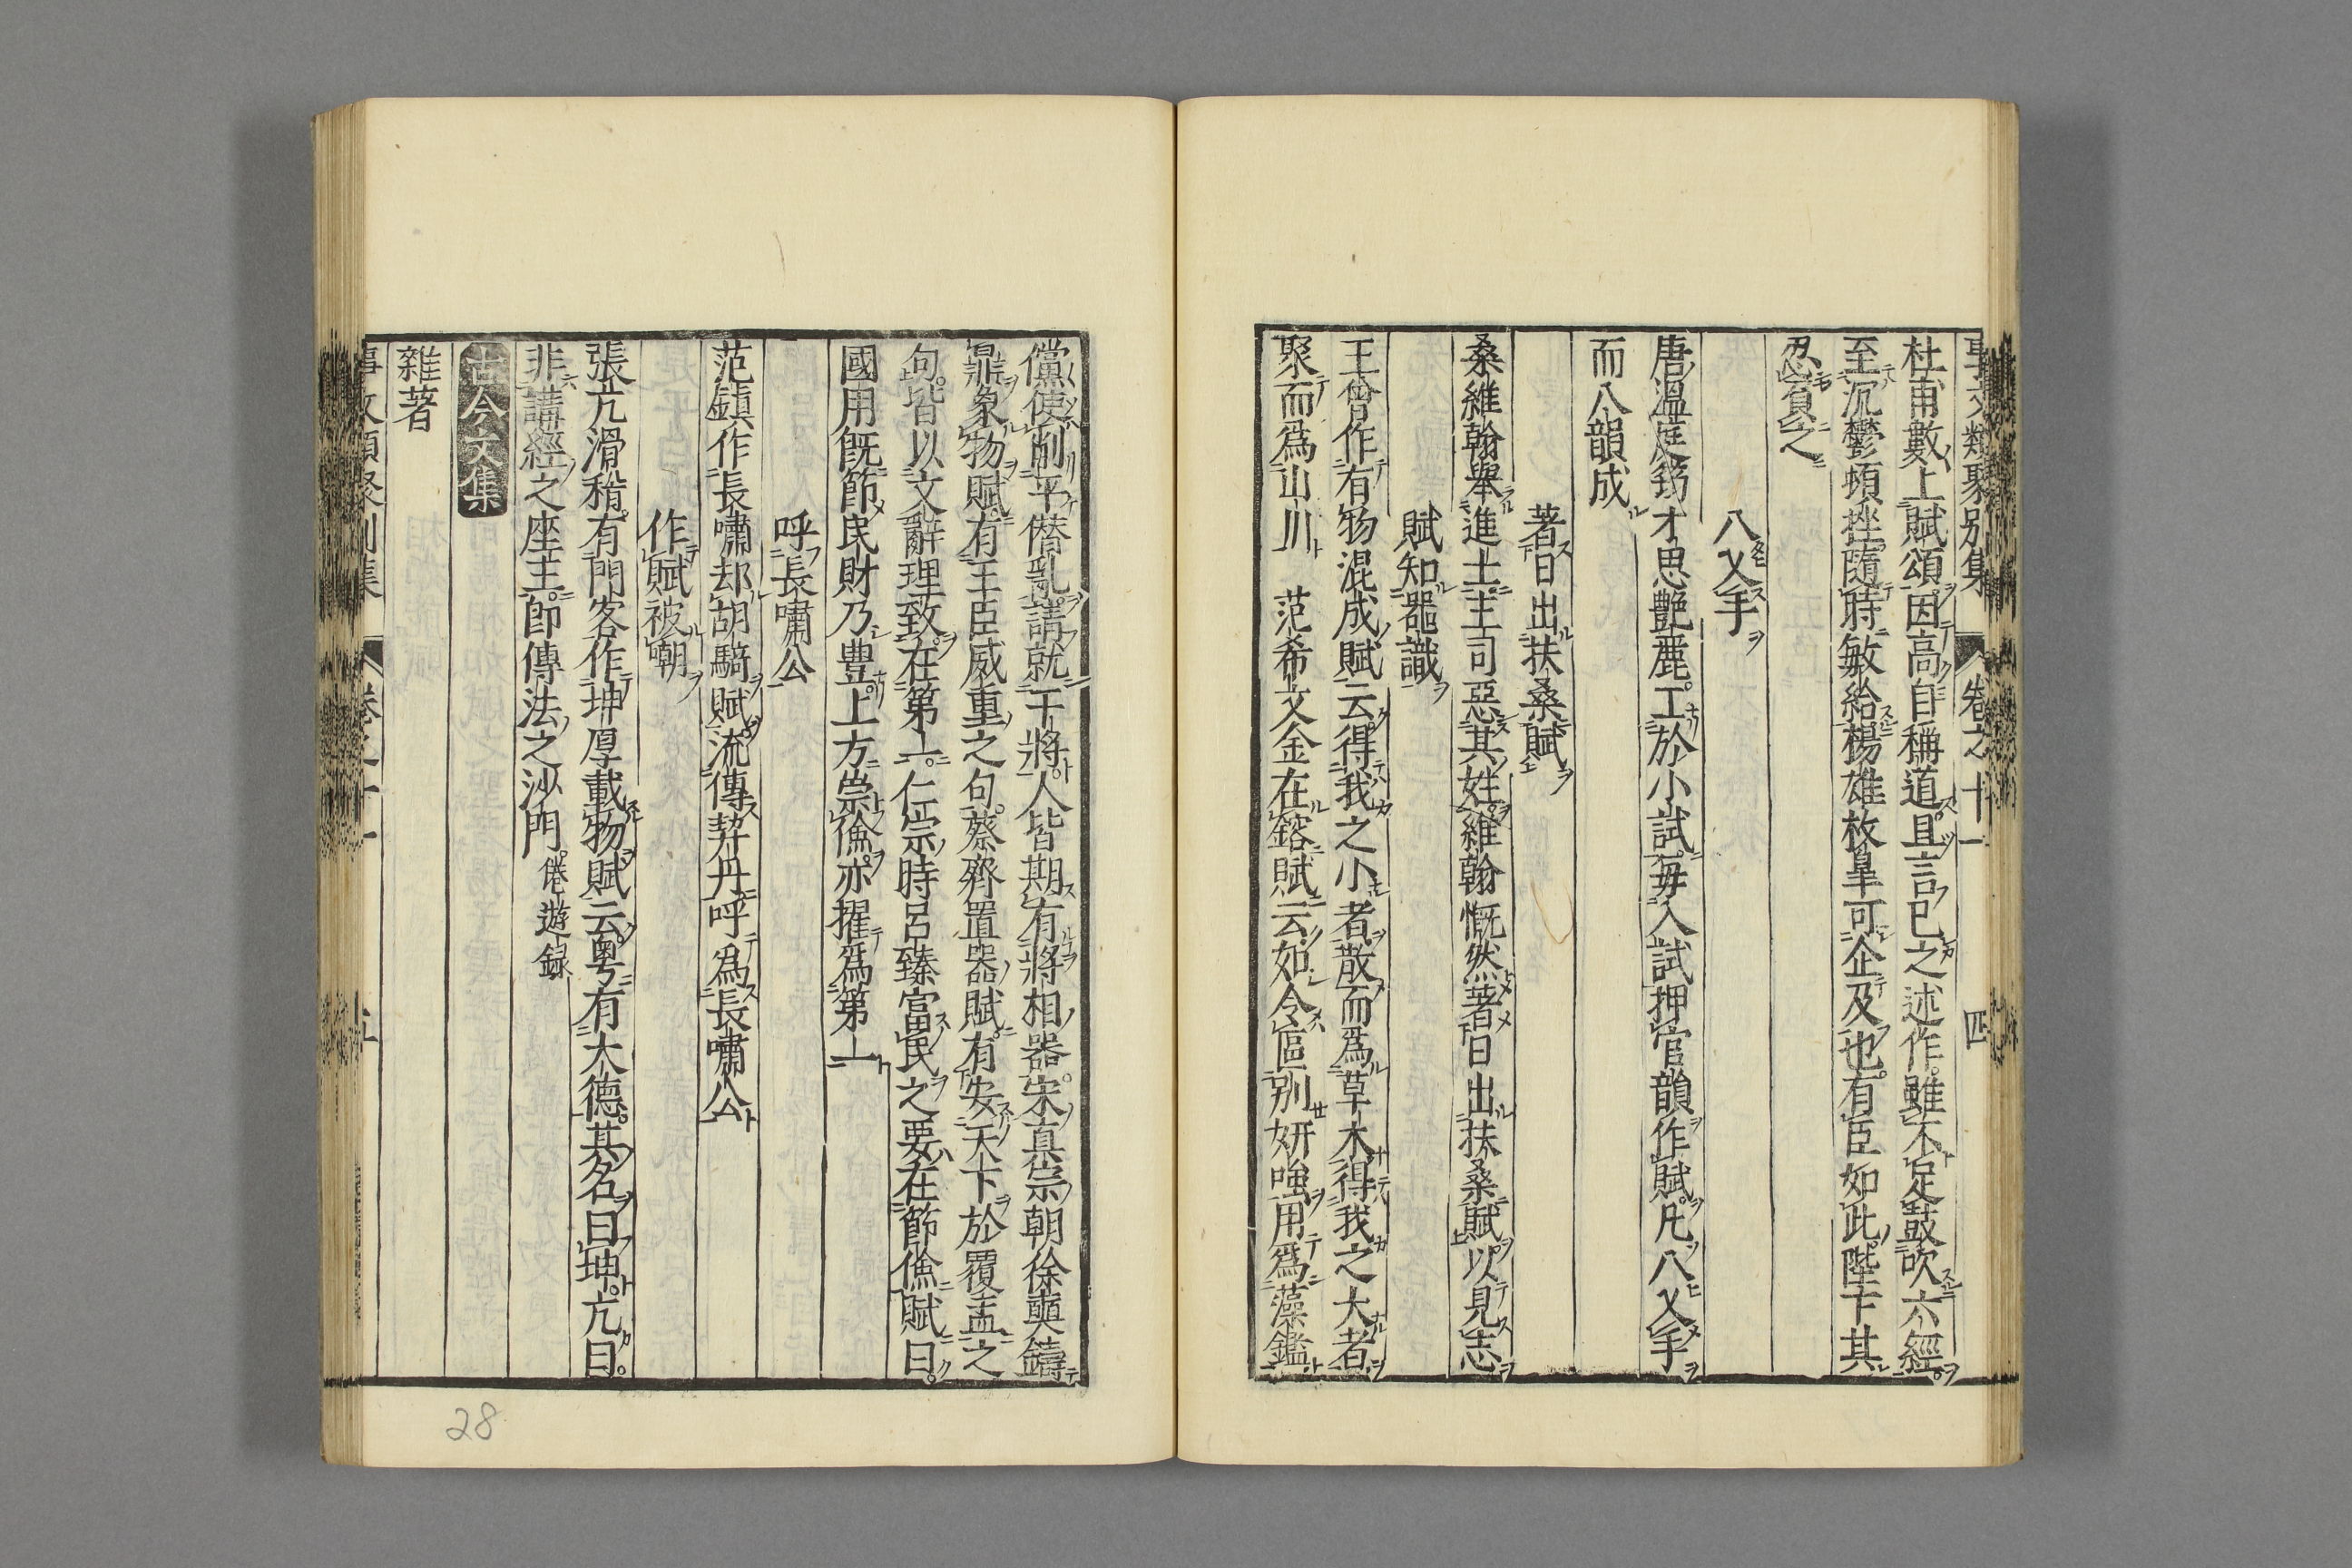 事文類聚別集 卷之十一 四
杜甫數上賦頌因高自稱道且言已之述作雖不足鼓吹六經
至沉鬱頓挫隨時敏給楊雄枚皐可企及也有臣如此陛下其
忍負之
八义手
唐温庭筠才思艷麗工於小試每入試押官韻作賦凡八义手
而八韻成
著日出扶桑賦
桑維翰舉進士主司惡其姓維翰慨然著日出扶桑賦以見志
賦知器識
王曾作有物混成賦云得我之小者散而爲草木得我之大者
聚而爲山川 范希文金在鎔賦云如令區別妍嗤用爲藻鑑
儻使削平僭亂請就干將人皆期有將相器宋真宗朝徐奭鑄
鼎象物賦有王臣威重之句蔡齊置器賦有安天下於覆盂之
句皆以文辭理致在第一仁宗時呂臻富民之要在節儉賦曰
國用旣節民財乃豊上方崇儉亦擢爲第一
呼長嘯公
范鎮作長嘯却胡騎賦流傳契丹呼爲長嘯公
作賦被嘲
張亢滑稽有門客作坤厚載物賦云粤有大德其名曰坤亢曰
非講經之座主即傳法之沙門 倦遊録
古今文集
雜著
事文類聚別集 卷之十一 五
28